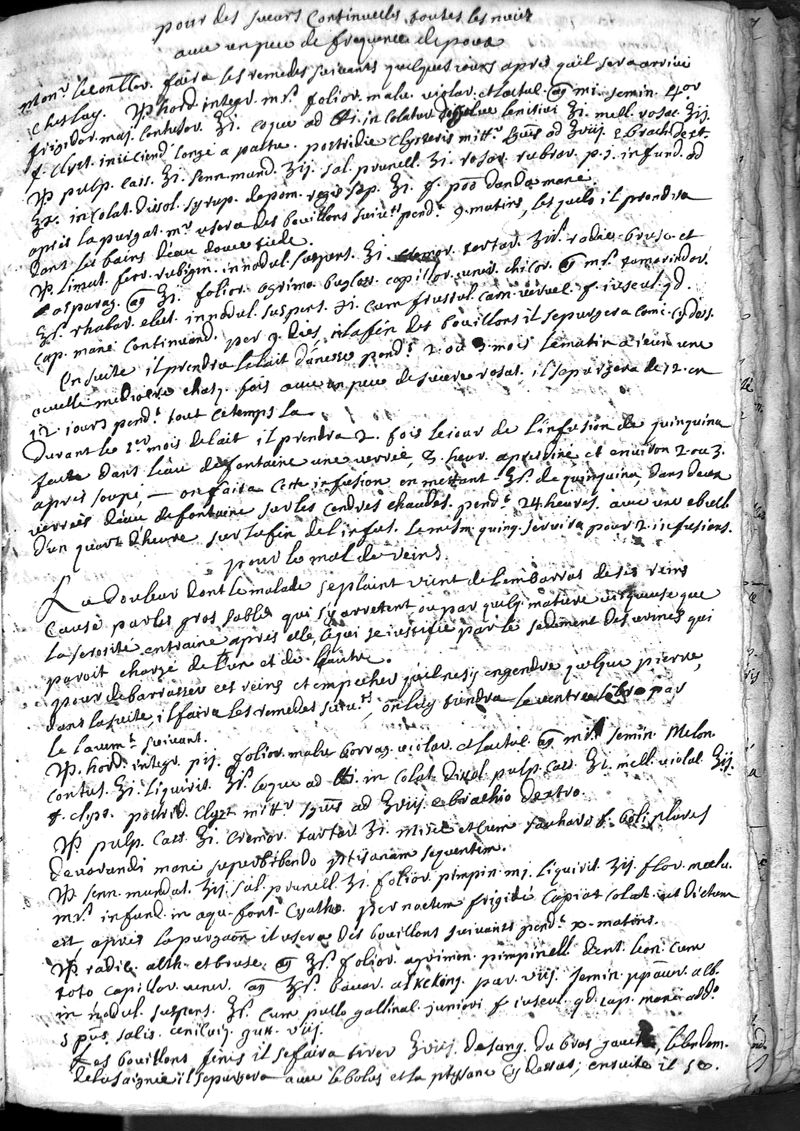 pour des sueurs Continuelles toutes les nuits
avec un peu de frequence de poux
Monr. faira les remedes suivants quelques jours apres quil sera arrivé
Chesluy. ℞ hord. integr. mß. folior. malv. violar. et lactuc. aa mi. semin. 4or
frigidor. maj. contusor. ℥i. coque ad in colatur dissolve lenitivi ℥i. mell. rosac. ℥ij.
f. Clyst. iniiciend. longe a pastu. postridie Clysteris mittr. ad ℥viij. e brachio dext.
℞ pulp. cass. ℥i. senn. mund. ʒij. sal. prunell. ʒi. rosar. rubrar. p.i. infund. ad
in colat. dissol. syrup. de pom. regis sap. ℥i. f. po͞o danda mane
après la purgat. mr. usera des bouillons suivts. pendt. 9. matins, les quels il prendra
dans les bains d'eau douce tiede.
℞ limat. ferr. rubigin. in nodul. suspens. ʒi. tartar. ʒß. radic. brusc. et
asparag. aa ℥i. folior. agrimo. bugloss. capillor. vener. chicor. aa mß. tamarindor.
℥ß. rhabar. elect. in nodul. suspens. ʒi. cum frustul. carn. vervec. f. iuscul. qd.
cap. mane continuand. per 9. dies, à la fin des bouillons il se purgera comme cy dess.
En suite il prendra le lait d'anesse pendt. 2. ou 3 mois le matin a jeun une
ecuelle mediocre chasq. fois avec un peu de sucre rosat. il se purgera de 12. en
12. jours pendt. tout ce temps la.
Durant le 1er. mois de lait il prendra 2. fois le jour de l'infusion de quinquina
faite dans l'eau de fontaine une verrée, 3. heur. apres diné et environ 2 ou 3.
apres soupé — on faira cette infusion en mettant ℥ß. de quinquina, dans deux
verrées d'eau de fontaine sur les cendres chaudes pendt. 24 heures. avec une ebull.
d'un quart d'heure sur la fin de l'infus. le mesm. quinq. servira pour 2. infusions.
pour le mal de reins.
La douleur dont le malade se plaint vient de l'embarras de ses reins
causé par les gros sables qui s'y arretent ou par quelq. matiere visqueuse que
la serosité entraine apres elle, ce qui se iustifie par le sediment des urines qui
paroit chargé de l'un et de l'autre.
pour debarrasser ces reins et empecher quil ne s'y engendre quelque pierre,
dans la suite, il faira les remedes suivts., on luy tiendra le ventre libre par
le lavemt. suivant.
℞. hord. integr. pij. folior. malv. borrag. violar. et lactuc. aa mß. semin. Melon
contus. ℥i. liquirit. ℥ß. coque ad in colat. dissol. pulp. cass. ℥i. mell. violat. ℥ij.
f. clys. postrid. clyst. mittr. ad ℥viij. e brachio dextro.
℞ pulp. Cass. ℥i. cremor. tartar. ʒi. misce et cum saccharo f. boli plures
devorandi mane superbibendo ptisanam sequentem.
℞ senn. mundat. ʒij. sal. prunell. ʒi. folior. pimpin. mj. liquirit. ʒij. flor. malv.
mß. infund. in aqu. font. Cyatho. per noctem frigidè capiat colat. ut dictum
est apres la purgaōn il usera des bouillons suivants pendt. matins.
℞ radic. alth. et brusc. aa ℥ß. folior. agrimon. pimpinell. dent. leon. cum
toto capillor. vener. aa mß. baccar. alkekeng. par. viij. semin. papaver. alb.
in nodul. suspens. ʒß. cum pullo gallinac. juniori f. iuscul. qd. cap. mane addo.
salis. gutt. viij.
Les bouillons finis il se faira tirer ℥viij. de sang du bras gauche, le lendem.
de la saignée il se purgera avec le bolus et la ptysane cy dessus; ensuite il se.